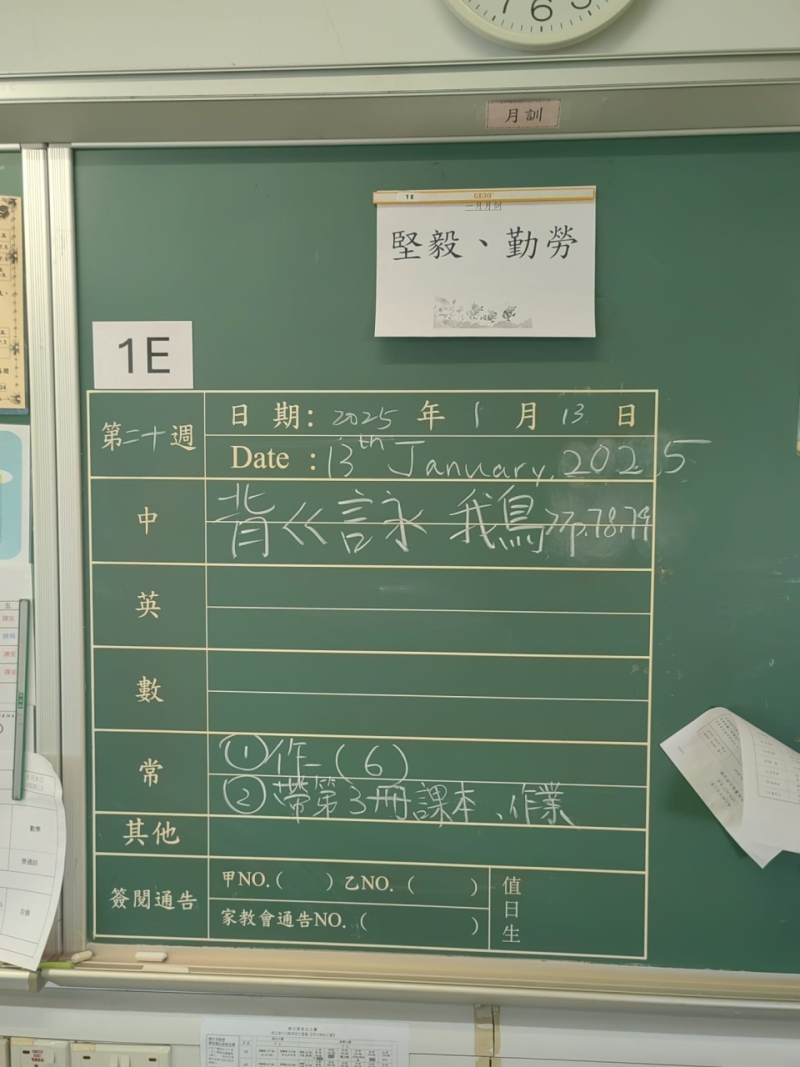 6
月訓
1E
一月月訓
堅毅、勤勞
1E
第二十週
日期: 2025 年 1 月 13 日
Date : 13th January, 2025
中
背<<詠我鳥>>p.78,79
英
數
常
①作-(6)
②帶第3冊課本、作業
其他
簽閱通告
甲NO.( ) 乙NO. ( )
家教會通告NO. ( )
值日生